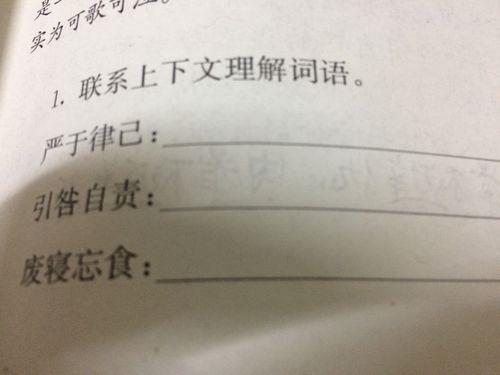 是
实为可歌可泣。
1. 联系上下文理解词语。
严于律己:
引咎自责:
废寝忘食: